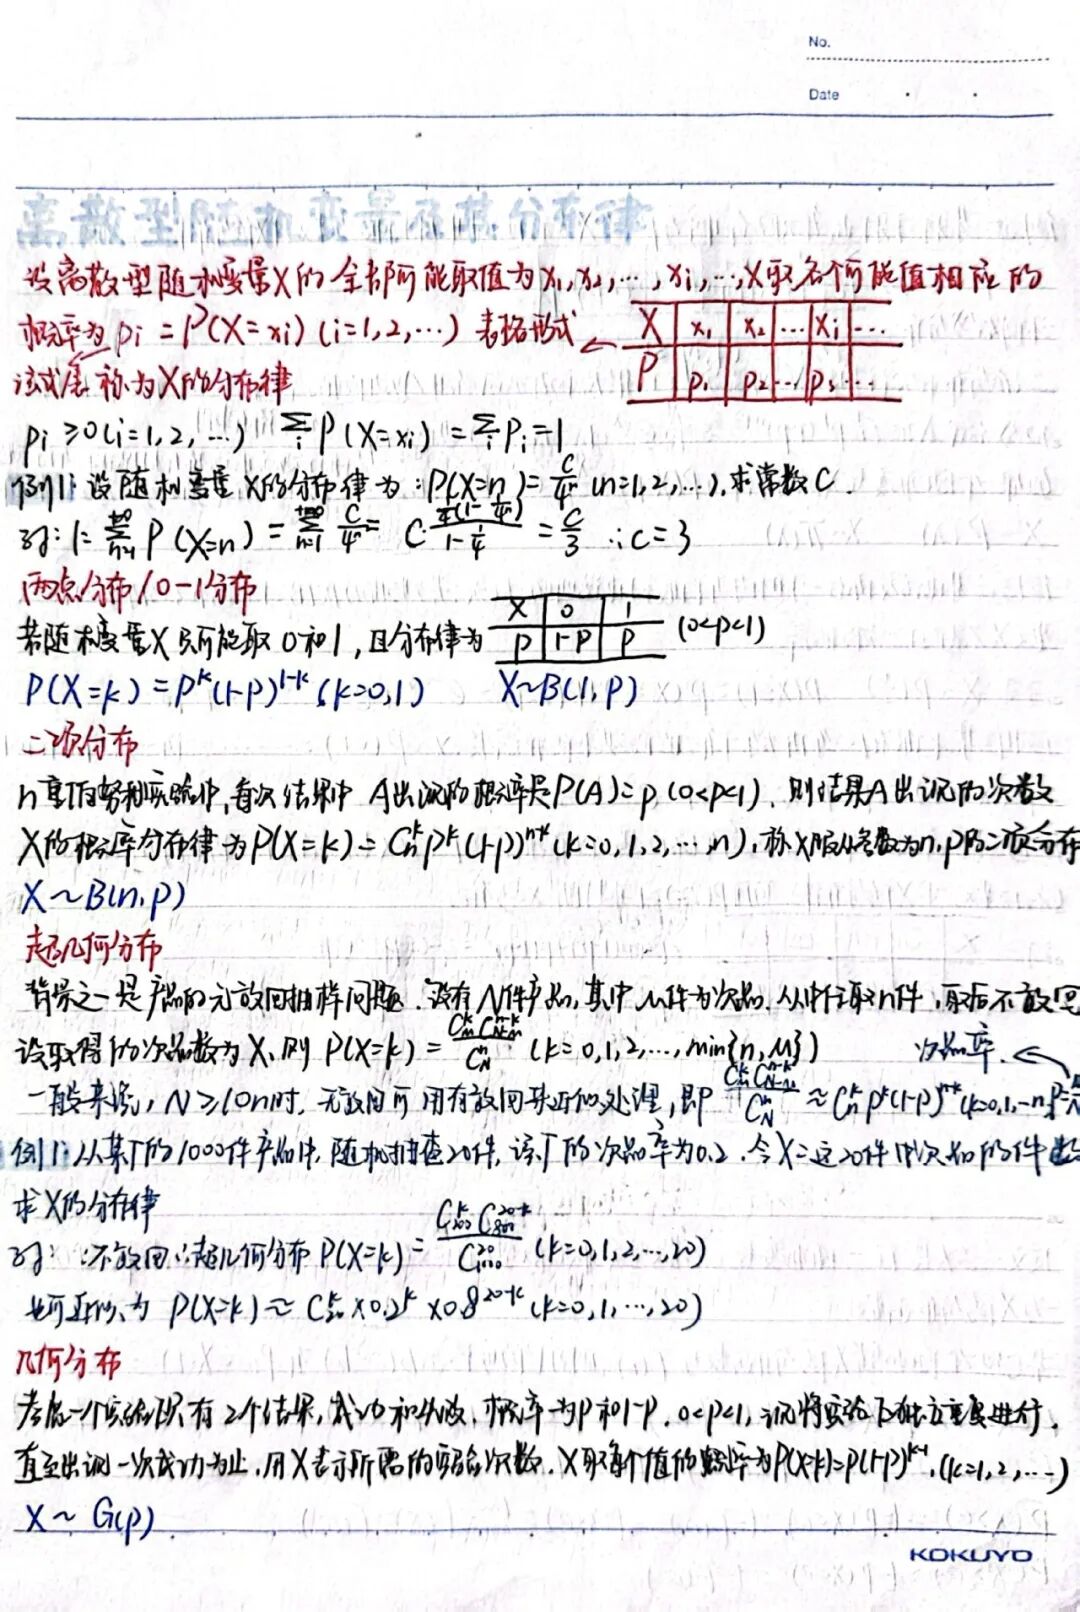 No.
Date
离散型随机变量及其分布律
设离散型随机变量X的全部可能取值为x₁,x₂,…,xᵢ,…,X取各个可能值相应的
概率为pᵢ=P(X=xᵢ)(i=1,2,…) 表格形式
X x₁ x₂ … xᵢ …
P p₁ p₂ … pᵢ …
该式 称为X的分布律
pᵢ≥0(i=1,2,…) Σᵢ P(X=xᵢ)=Σᵢ Pᵢ=1
例1:设随机变量X的分布律为:P(X=n)=C/4ⁿ (n=1,2,…),求常数C.
解:1=Σ(n=1→+∞) P(X=n)=Σ(n=1→+∞) C/4ⁿ=C·¼(1-1/4ⁿ)/(1-¼)=C/3 ∴C=3
两点分布/0-1分布
若随机变量X只可能取0和1,且分布律为
X 0 1
P 1-P P
(0<p<1)
P(X=k)=Pᵏ(1-p)¹⁻ᵏ(k=0,1) X~B(1,P)
二项分布
n重伯努利实验中,每次结果中A出现的概率是P(A)=p(0<p<1),则结果A出现的次数
X的概率分布律为P(X=k)=Cₙᵏpᵏ(1-p)ⁿ⁻ᵏ(k=0,1,2,…,n),称X服从参数为n,p的二项分布
X~B(n,p)
超几何分布
背景之一是产品的无放回抽样问题.设有N件产品,其中M件为次品,从中任取n件,取后不放回
设取得的次品数为X,则P(X=k)=C_Mᵏ C_{N-M}ⁿ⁻ᵏ/C_Nⁿ (k=0,1,2,…,min{n,M}) 次品率
一般来说,N≥10n时,无放回可用有放回来近似处理,即C_Mᵏ C_{N-M}ⁿ⁻ᵏ/C_Nⁿ≈Cₙᵏpᵏ(1-p)ⁿ⁻ᵏ(k=0,1,…n
例1:从某厂的1000件产品中,随机抽查20件,该厂的次品率为0.2.令X=这20件中次品的件数
求X的分布律
解:∵不放回∴超几何分布 P(X=k)=C₂₀₀ᵏ C₈₀₀²⁰⁻ᵏ/C₁₀₀₀²⁰ (k=0,1,2,…,20)
也可近似为 P(X=k)≈C₂₀ᵏ×0.2ᵏ×0.8²⁰⁻ᵏ(k=0,1,…,20)
几何分布
考虑一个实验只有2个结果,成功和失败,概率为p和1-p,0<p<1,现将实验独立重复进行,
直至出现一次成功为止,用X表示所需的实验次数,X取每个值的概率为P(X=k)=p(1-p)ᵏ⁻¹,(k=1,2,…)
X~G(p)
KOKUYO